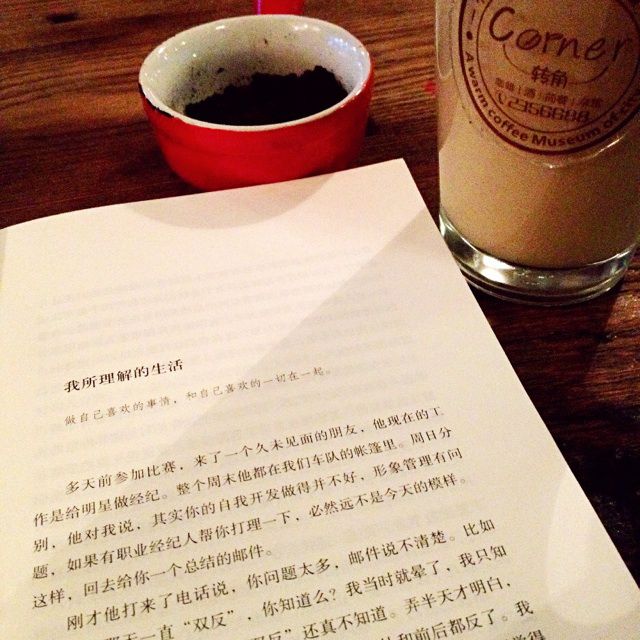 Corner
转角
2356688
A warm coffee Museum of
我所理解的生活
做自己喜欢的事情，和自己喜欢的一切在一起。
多天前参加比赛，来了一个久未见面的朋友，他现在的工
作是给明星做经纪。整个周末他都在我们车队的帐篷里。周日分
别，他对我说，其实你的自我开发做得并不好，形象管理有问
题，如果有职业经纪人帮你打理一下，必然远不是今天的模样。
这样，回去给你一个总结的邮件。
刚才他打来了电话说，你问题太多，邮件说不清楚。比如
那天一直“双反”，你知道么？我当时就晕了，我只知
双反”还真不知道。弄半天才明白，
和前后都反了。我